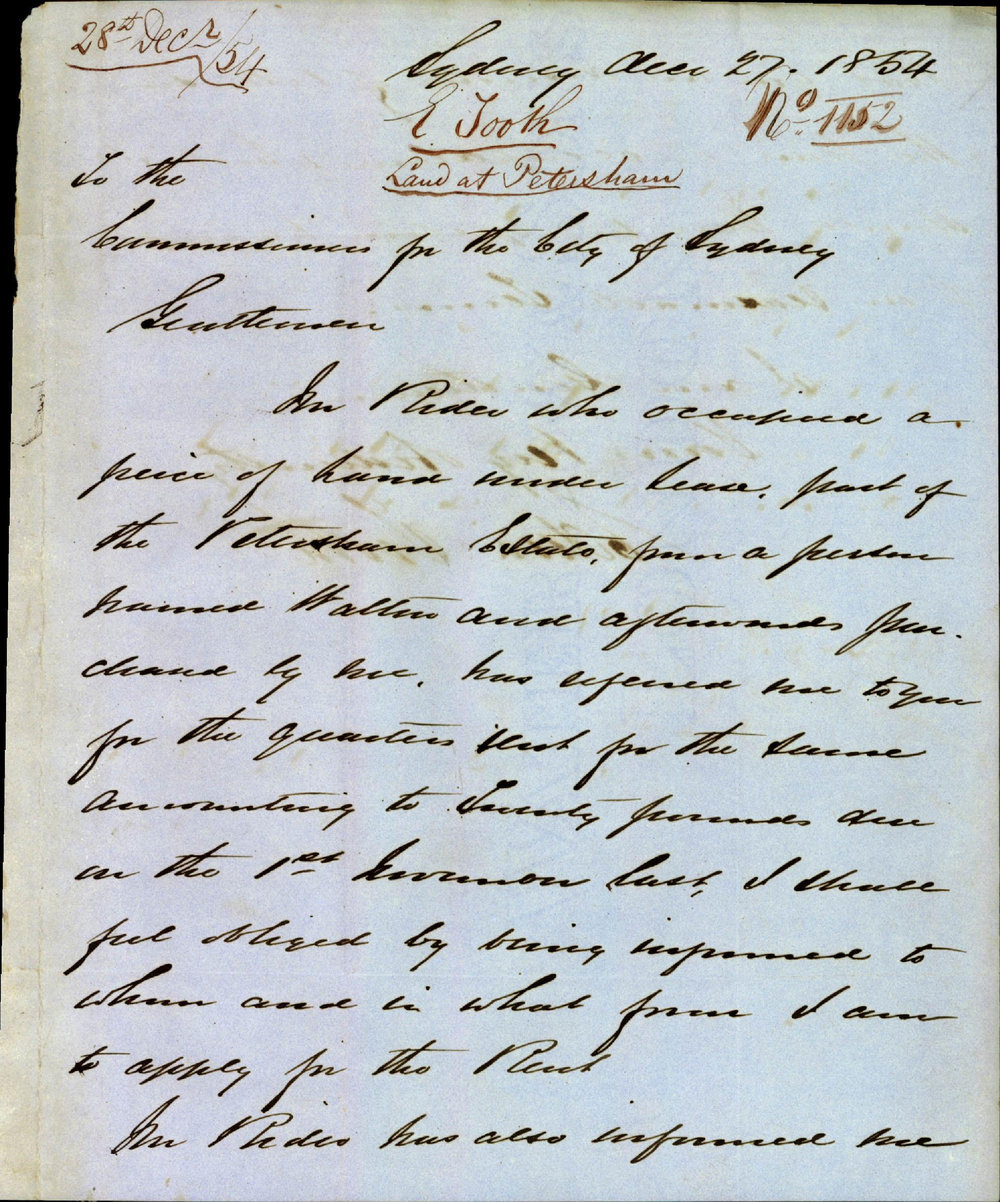 28th Decr/54
Sydney Decr 27. 1854
E Tooth
No. 1152
To the
Land at Petersham
Commissioners for the City of Sydney
Gentlemen
Mr Rider who occupied a
peice of Land under lease, part of
the Petersham Estate, from a person
named Walton and afterwards pur-
chased by me, has refered me to you
for the quarters Rent for the same
amounting to Twenty pounds due
on the 1st November last, I shall
feel obliged by being informed to
whom and in what form I am
to apply for the Rent
Mr Rider has also informed me